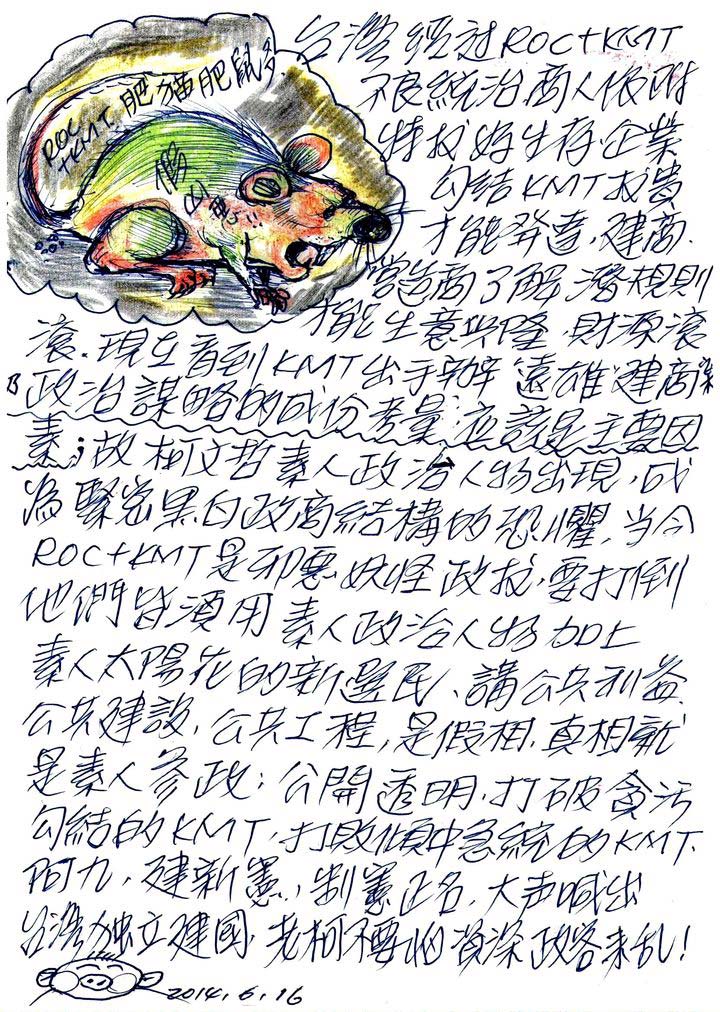 ROC+KMT 肥貓肥鼠多
台灣經过ROC+KMT
不良統治商人依附
特权好生存.企業
勾結KMT权貴
才能発達,建商.
營造商了解潛規則
才能生意兴隆,財源滾
滾.現在看到KMT出手辦遠雄建商案
政治謀略的成份考量应該是主要因
素;故柯文哲素人政治人物出現,成
為緊密黑白政商結構的恐懼,当今
ROC+KMT是邪惡妖怪政权,要打倒
他們皆須用素人政治人物加上
素人太陽花的新選民、講公共利益
公共建設,公共工程,是假相,真相就
是素人參政;公開透明,打破貪污
勾結的KMT,打敗傾中急統的KMT.
阿九,建新憲,制憲正名,大声喊出
台灣独立建國,老柯不要怕資深政客来乱!
2014.6.16